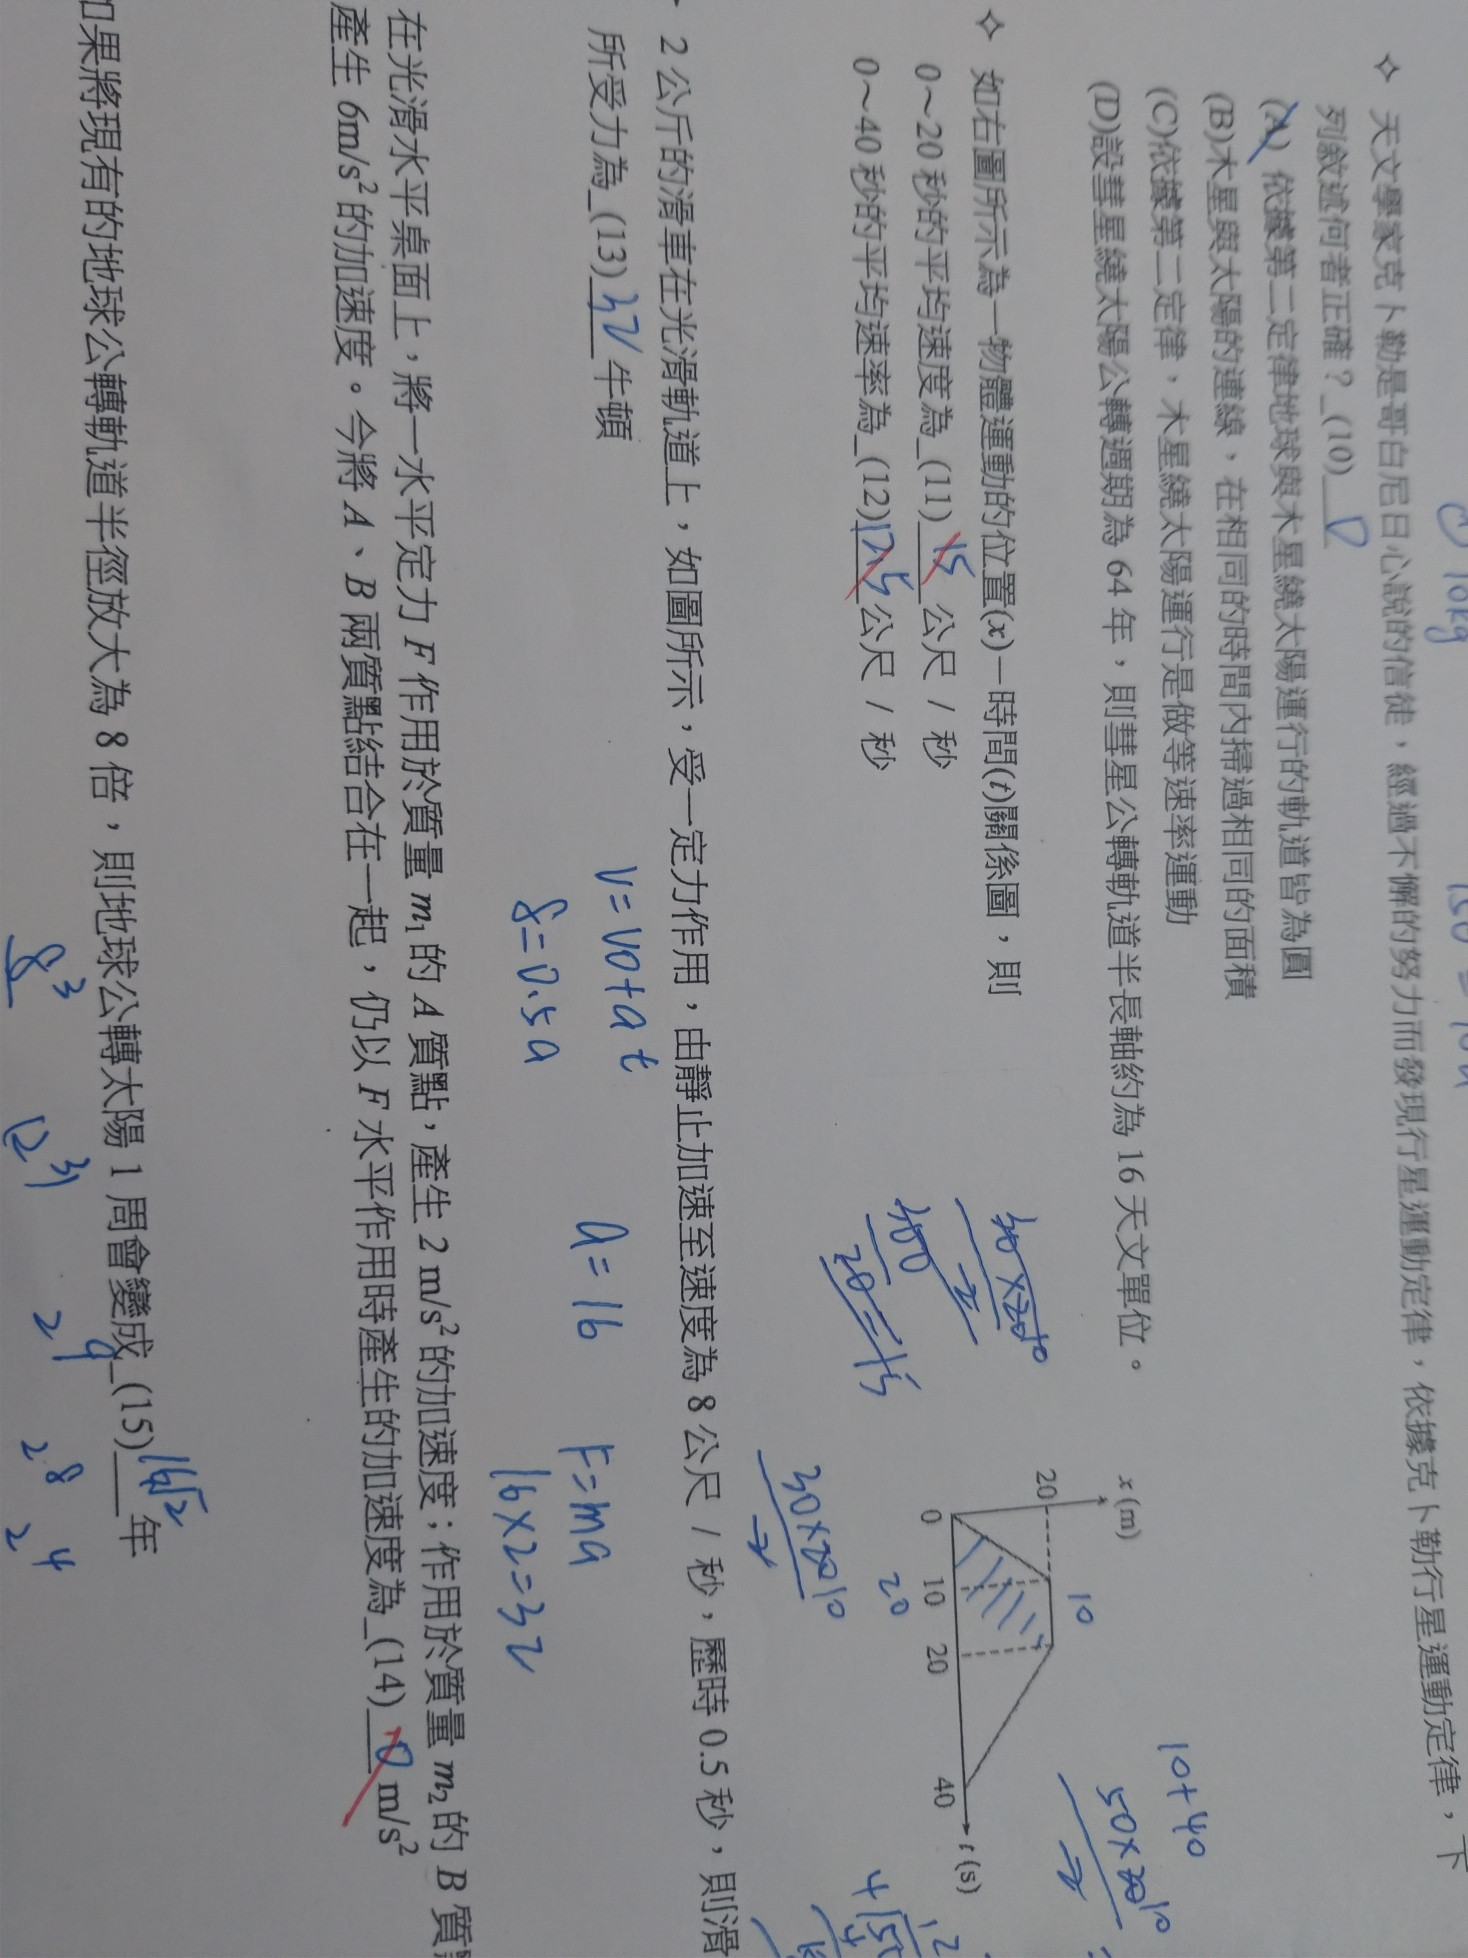 10kg
✧ 天文學家克卜勒是哥白尼日心說的信徒，經過不懈的努力而發現行星運動定律，依據克卜勒行星運動定律，下
列敘述何者正確？_(10)__D
(A) 依據第二定律地球與木星繞太陽運行的軌道皆為圓
(B)木星與太陽的連線，在相同的時間內掃過相同的面積
(C)依據第二定律，木星繞太陽運行是做等速率運動
(D)設彗星繞太陽公轉週期為 64 年，則彗星公轉軌道半長軸約為 16 天文單位。
✧ 如右圖所示為一物體運動的位置(x)－時間(t)關係圖，則
0～20 秒的平均速度為_(11)__15 公尺 / 秒
0～40 秒的平均速率為_(12)12.5 公尺 / 秒
x (m)
20
0 10 20 40 t (s)
10
20
10+40
2 公斤的滑車在光滑軌道上，如圖所示，受一定力作用，由靜止加速至速度為 8 公尺 / 秒，歷時 0.5 秒，則滑
所受力為_(13)_32 牛頓
v=v0+at
8=0.5a
a=16
F=ma
16×2=32
在光滑水平桌面上，將一水平定力 F 作用於質量 m₁ 的 A 質點，產生 2 m/s² 的加速度；作用於質量 m₂ 的 B 質
產生 6m/s² 的加速度。今將 A、B 兩質點結合在一起，仍以 F 水平作用時產生的加速度為_(14)__ m/s²
如果將現有的地球公轉軌道半徑放大為 8 倍，則地球公轉太陽 1 周會變成_(15)__16√2 年
8³
2⁹
2⁸
2⁴